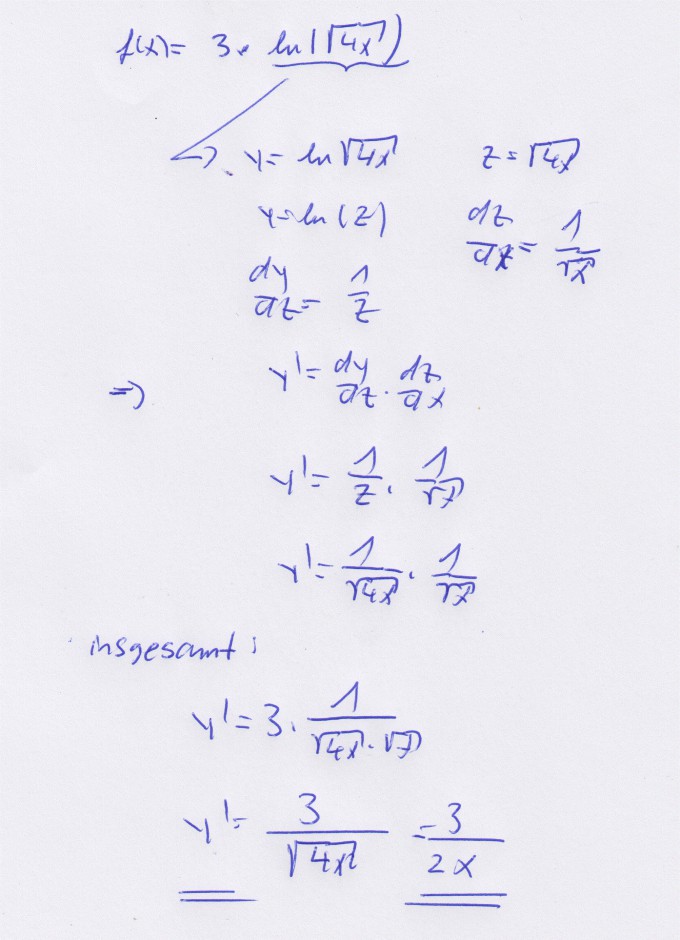 f(x)= 3· ln(√4x)
y= ln √4x z=√4x
y=ln(z) dz/dx = 1/√x
dy/dz = 1/z
=> y'= dy/dz · dz/dx
y'= 1/z · 1/√x
y'= 1/√4x · 1/√x
insgesamt:
y'= 3· 1/(√4x·√x)
y'= 3/√4x² = 3/2x